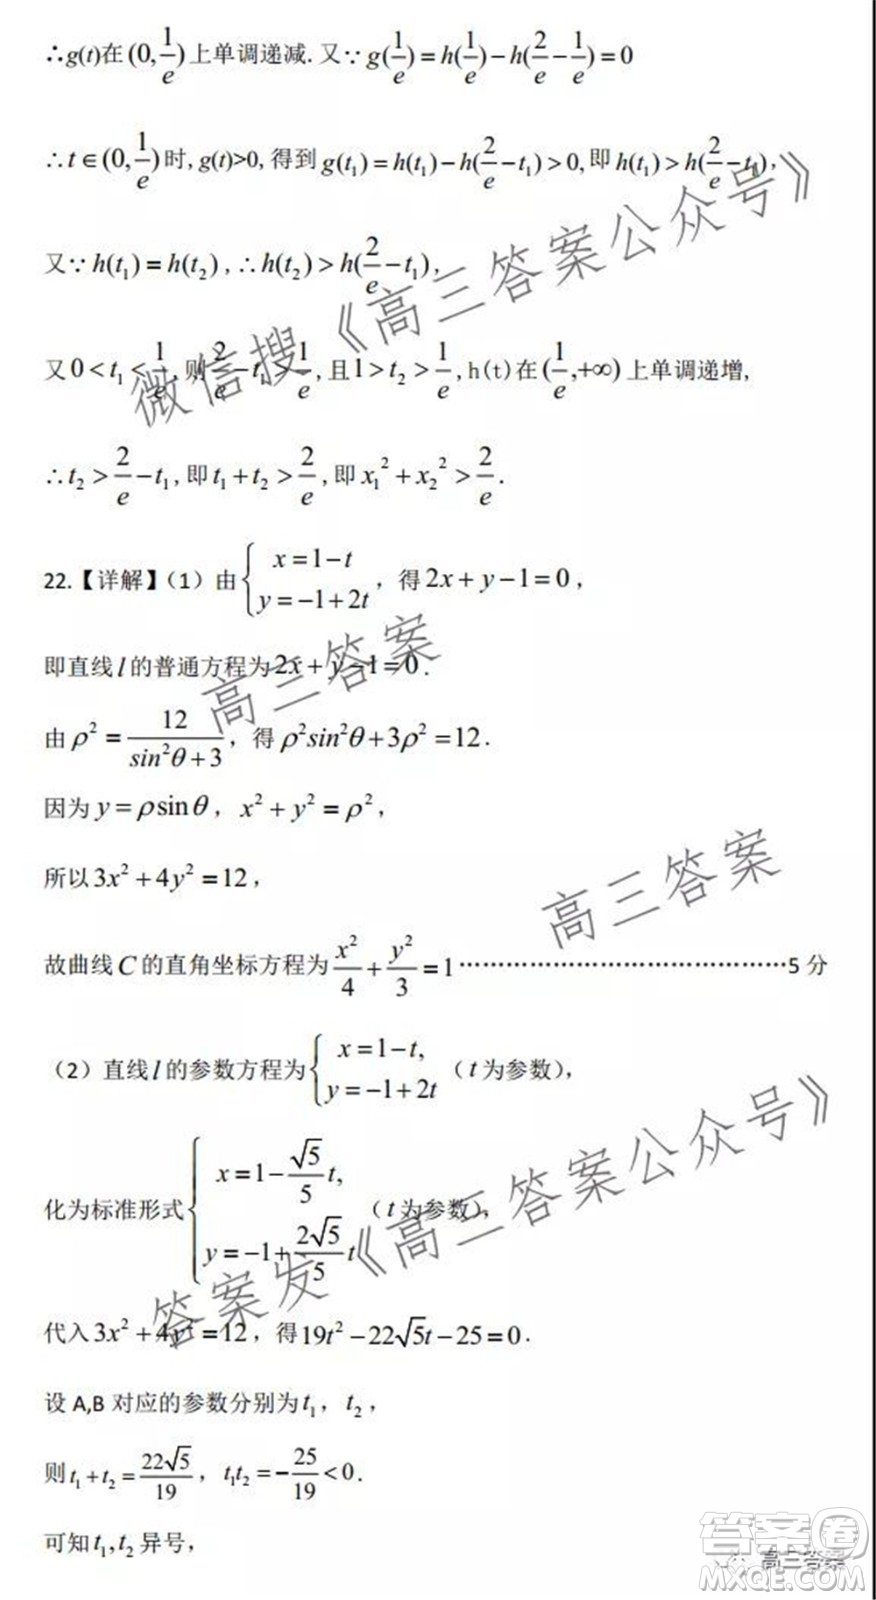 ∴g(t)在(0,1/e)上单调递减.又∵g(1/e)=h(1/e)-h(2/e-1/e)=0
∴t∈(0,1/e)时,g(t)>0,得到g(t₁)=h(t₁)-h(2/e-t₁)>0,即h(t₁)>h(2/e-t₁),
又∵h(t₁)=h(t₂),∴h(t₂)>h(2/e-t₁),
又0<t₁<1/e,则2/e-t₁>1/e,且1>t₂>1/e,h(t)在(1/e,+∞)上单调递增,
∴t₂>2/e-t₁,即t₁+t₂>2/e,即x₁²+x₂²>2/e.
微信搜《高三答案公众号》
22.【详解】(1)由{x=1-t y=-1+2t,得2x+y-1=0,
即直线l的普通方程为2x+y-1=0.
高三答案
由ρ²=12/(sin²θ+3),得ρ²sin²θ+3ρ²=12.
因为y=ρsinθ,x²+y²=ρ²,
所以3x²+4y²=12,
高三答案
故曲线C的直角坐标方程为x²/4+y²/3=1……………………………………5分
(2)直线l的参数方程为{x=1-t, y=-1+2t(t为参数),
化为标准形式{x=1-√5/5 t, y=-1+2√5/5 t(t为参数),
答案发《高三答案公众号》
代入3x²+4y²=12,得19t²-22√5t-25=0.
设A,B对应的参数分别为t₁,t₂,
则t₁+t₂=22√5/19,t₁t₂=-25/19<0.
可知t₁,t₂异号,
高三答案
答案卷
MXQE.COM